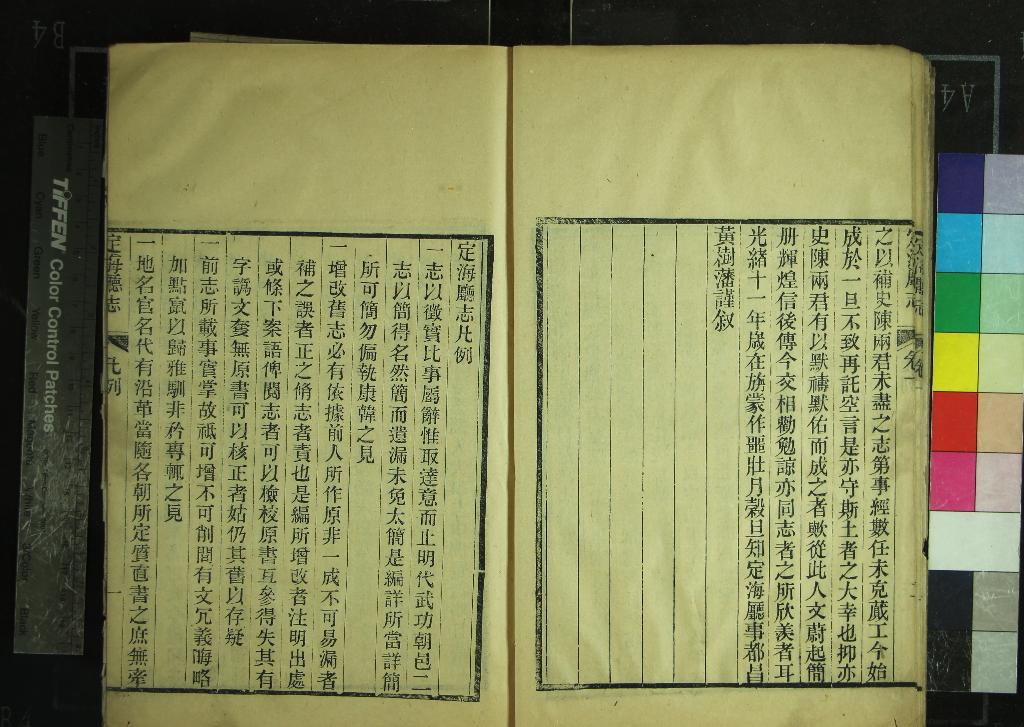 之以補史陳兩君未盡之志第事經數任未克蕆工今始
成於一旦不致再託空言是亦守斯土者之大幸也抑亦
史陳兩君有以默禱默佑而成之者歟從此人文蔚起簡
册輝煌信後傳今交相勸勉諒亦同志者之所欣羨者耳
光緒十一年歲在旃蒙作噩壯月穀旦知定海廳事都昌
黃樹藩謹叙
定海廳志凡例
一志以徵實比事屬辭惟取達意而止明代武功朝邑二
志以簡得名然簡而遺漏未免太簡是編詳所當詳簡
所可簡勿偏執康韓之見
一增改舊志必有依據前人所作原非一成不可易漏者
補之誤者正之脩志者責也是編所增改者注明出處
或條下案語俾閱志者可以檢校原書互參得失其有
字譌文奪無原書可以核正者姑仍其舊以存疑
一前志所載事實掌故祗可增不可削間有文冗義晦略
加點竄以歸雅馴非矜專輒之見
一地名官名代有沿革當隨各朝所定質直書之庶無牽
定海廳志
凡例
一
TIFFEN Color Control Patches
Blue
Cyan
Green
Yellow
Red
Magenta
Black
B4
A4